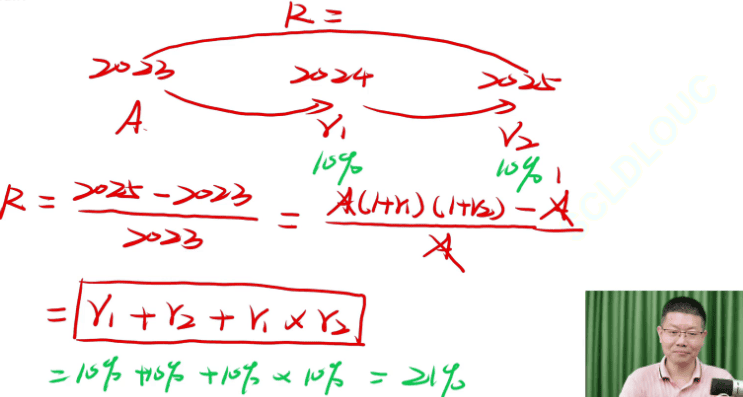 R =
2023 2024 2025
A. r₁ r₂
10% 10%
R = (2025 - 2023) / 2023 = (A(1+r₁)(1+r₂) - A) / A 1
= r₁ + r₂ + r₁ × r₂
= 10% + 10% + 10% × 10% = 21%
GLDLOUC